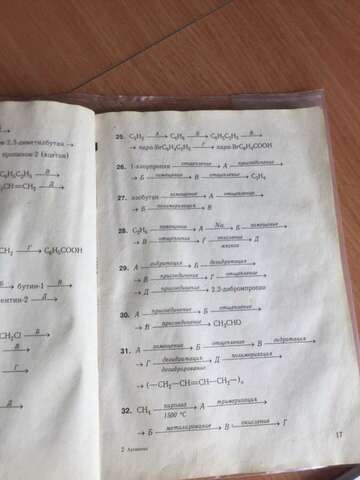 н-2,3-диметилбутан →
пропанон-2 (кетон)
C₆H₅C₂H₅ —В→
CH=CH₂ —Д→
CH₃ —Г→ C₆H₅COOH
→ бутин-1 —В→
пентин-2 →
CH₂Cl —В→
—В→
—Г→
—Д→
25. C₂H₂ —А→ C₆H₆ —Б→ C₆H₅C₂H₅ —В→
→ пара-BrC₆H₄C₂H₅ —Г→ пара-BrC₆H₄COOH
26. 1-хлорпропан —отщепление→ А —присоединение→
→ Б —замещение→ В —отщепление→ C₃H₄
27. изобутан —замещение→ А —отщепление→
→ Б —полимеризация→ В
28. C₂H₆ —замещение→ А —Na→ Б —замещение→
→ В —отщепление→ Г —окисление мягкое→ Д
29. А —гидратация→ Б —дегидратация→
→ В —присоединение→ Г —отщепление→
→ Д —присоединение→ 2,2-дибромпропан
30. А —присоединение→ Б —отщепление→
→ В —присоединение→ CH₃CHO
31. А —замещение→ Б —отщепление→ В —гидратация→
→ Г —дегидратация, дегидрирование→ Д —полимеризация→
→ (—CH₂—CH=CH—CH₂—)ₙ
32. CH₄ —пиролиз 1500 °C→ А —тримеризация→
→ Б —метилирование→ В —окисление→ Г
2
17